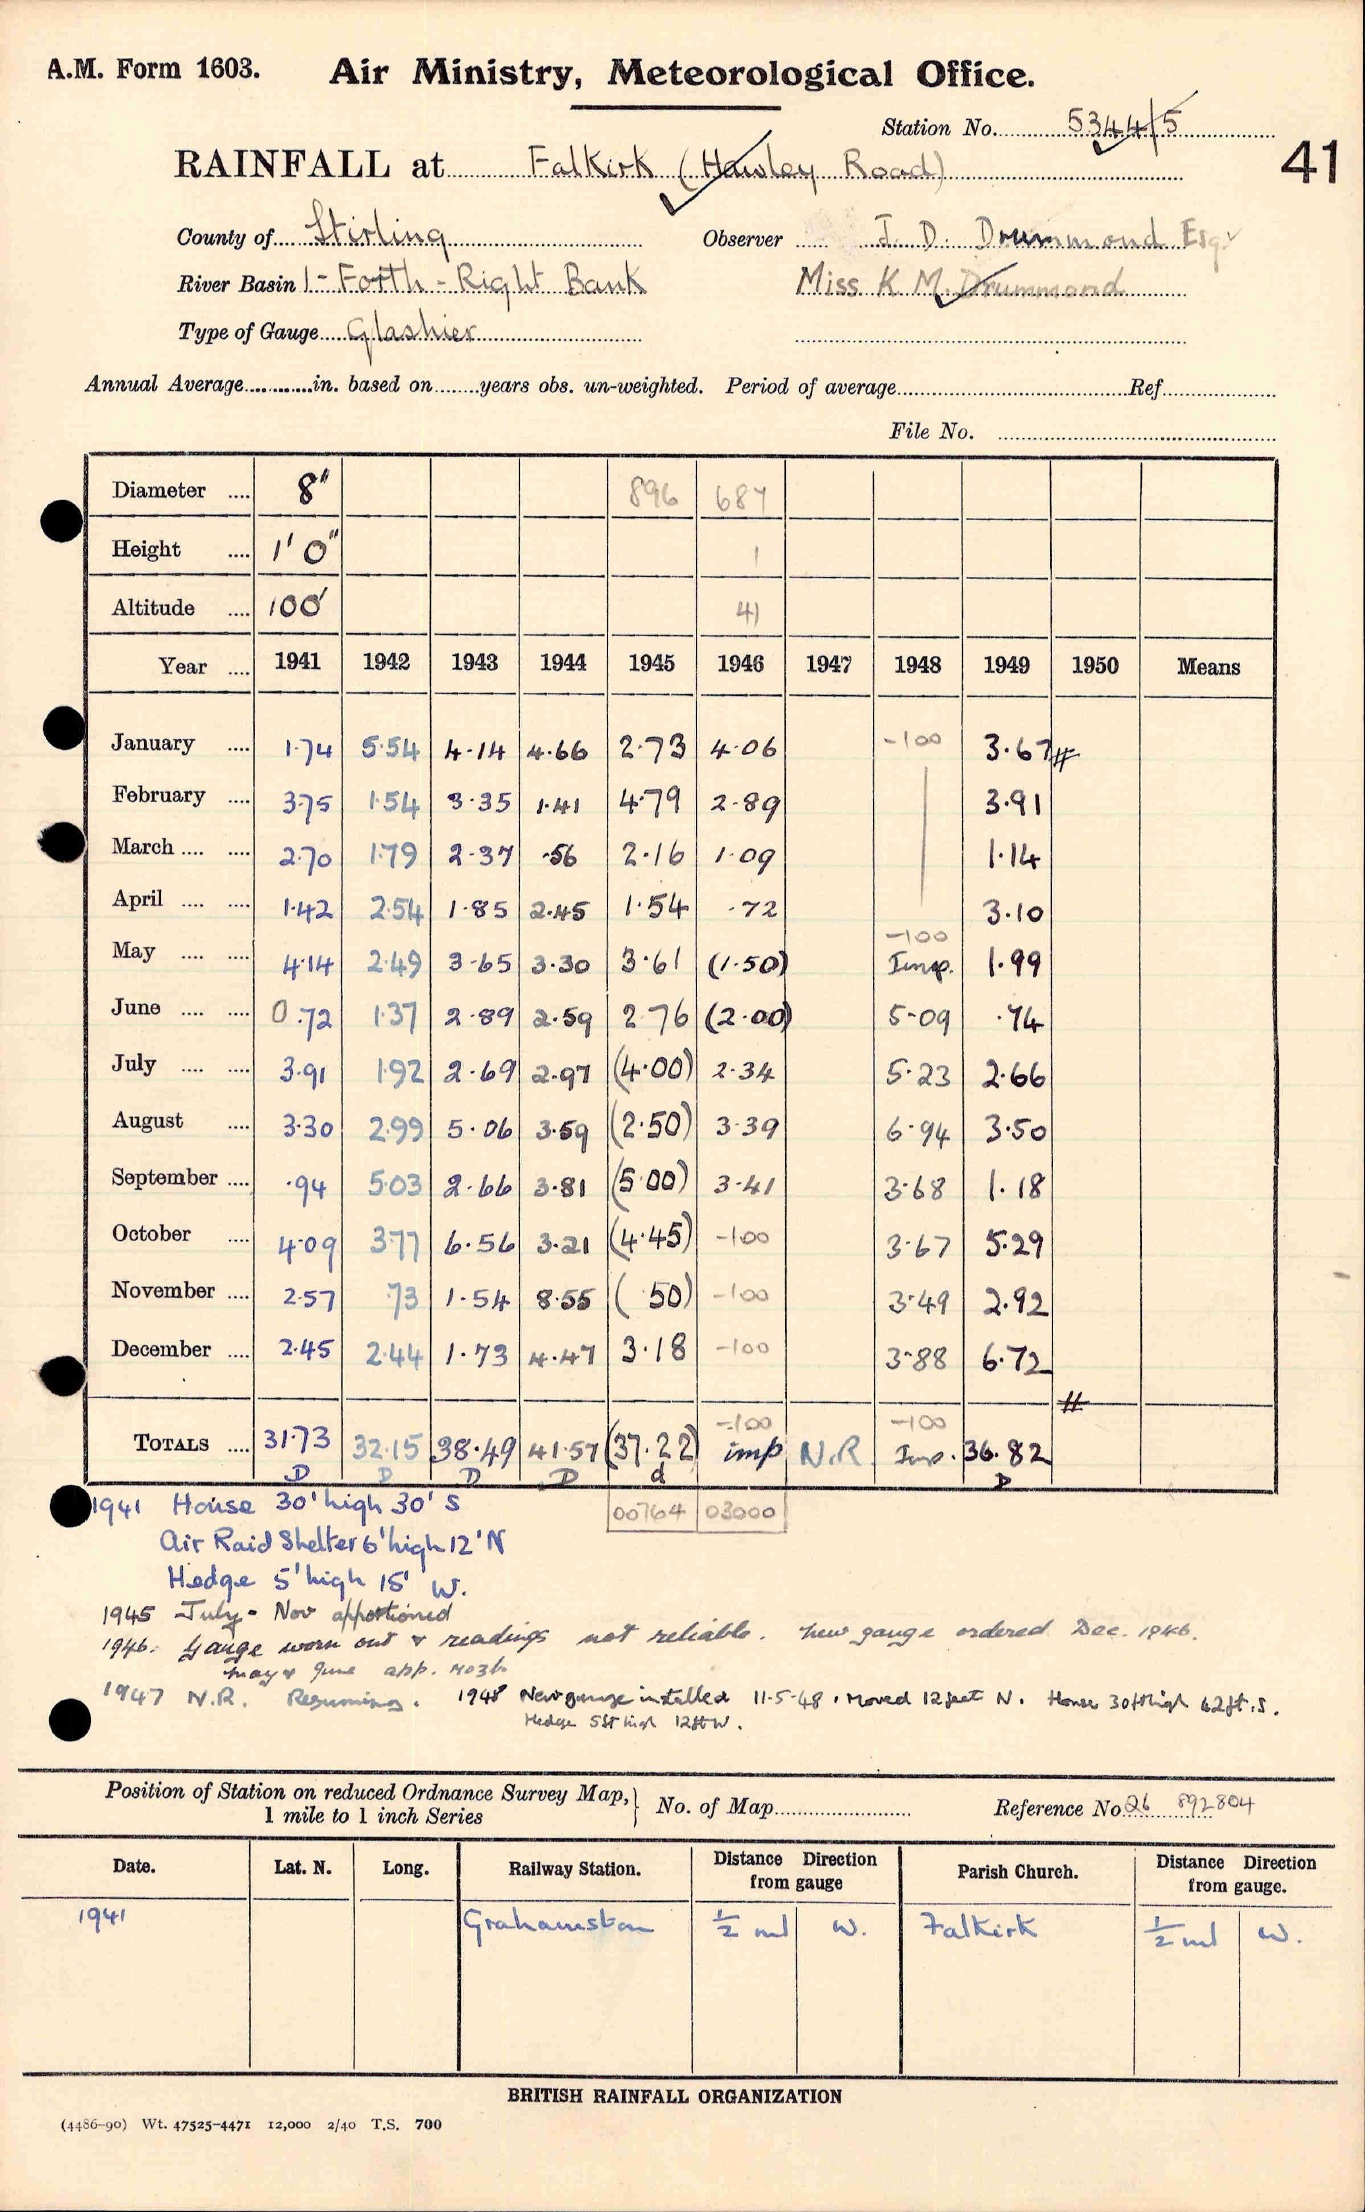 A.M. Form 1603. Air Ministry, Meteorological Office.
Station No. 5344/5
41
RAINFALL at Falkirk (Hawley Road)
County of Stirling Observer J. D. Drummond Esq.
River Basin 1 - Forth - Right Bank Miss K M. Drummond
Type of Gauge Glashier
Annual Average in. based on years obs. un-weighted. Period of average Ref
File No.
Diameter 8" 896 687
Height 1' 0" 1
Altitude 100' 41
Year 1941 1942 1943 1944 1945 1946 1947 1948 1949 1950 Means
January 1.74 5.54 4.14 4.66 2.73 4.06 -100 3.67 #
February 3.75 1.54 3.35 1.41 4.79 2.89 3.91
March 2.70 1.79 2.37 .56 2.16 1.09 1.14
April 1.42 2.54 1.85 2.45 1.54 .72 3.10
May 4.14 2.49 3.65 3.30 3.61 (1.50) -100 Imp. 1.99
June 0.72 1.37 2.89 2.59 2.76 (2.00) 5.09 .74
July 3.91 1.92 2.69 2.97 (4.00) 2.34 5.23 2.66
August 3.30 2.99 5.06 3.59 (2.50) 3.39 6.94 3.50
September .94 5.03 2.66 3.81 (5.00) 3.41 3.68 1.18
October 4.09 3.77 6.56 3.21 (4.45) -100 3.67 5.29
November 2.57 .73 1.54 8.55 ( 50) -100 3.49 2.92
December 2.45 2.44 1.73 4.47 3.18 -100 3.88 6.72
#
-100 -100
TOTALS 31.73 32.15 38.49 41.57 (37.22) imp N.R. Imp. 36.82
D D D D d D
00764 03000
1941 House 30' high 30' S
Air Raid Shelter 6' high 12' N
Hedge 5' high 15' W.
1945 July - Nov apportioned
1946. Gauge worn out & readings not reliable. New gauge ordered Dec. 1946.
May & June app.
1947 N.R. Resuming. 1948 New gauge installed 11-5-48. Moved 12 feet N. House 30ft high 42ft. S.
Hedge 5ft high 12ft W.
Position of Station on reduced Ordnance Survey Map, 1 mile to 1 inch Series } No. of Map Reference No. 26 892804
Date. Lat. N. Long. Railway Station. Distance Direction from gauge Parish Church. Distance Direction from gauge.
1941 Grahamston ½ ml W. Falkirk ½ ml W.
BRITISH RAINFALL ORGANIZATION
(4486-90) Wt. 47525-4471 12,000 2/40 T.S. 700